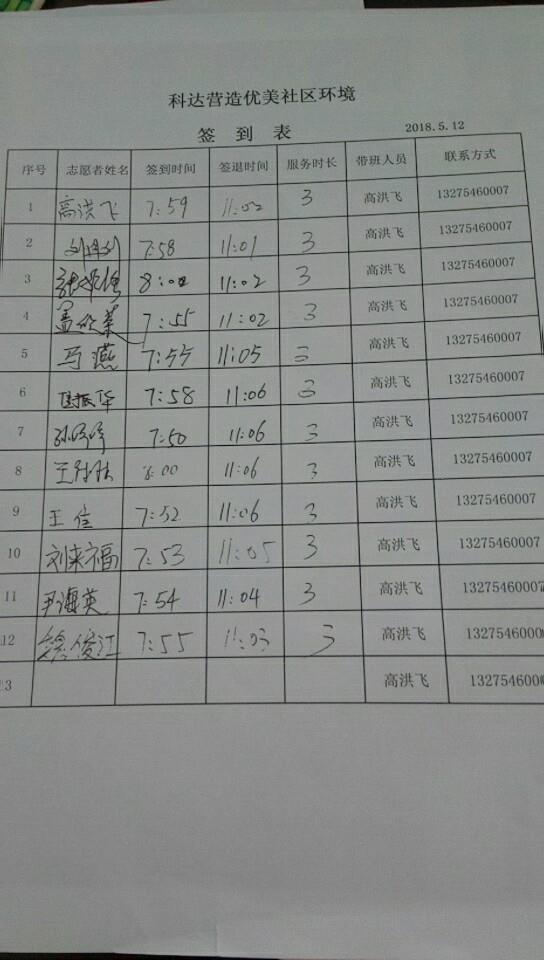 科达营造优美社区环境
签 到 表
2018.5.12
序号 志愿者姓名 签到时间 签退时间 服务时长 带班人员 联系方式
1 高洪飞 7:59 11:02 3 高洪飞 13275460007
2 7:58 11:01 3 高洪飞 13275460007
3 8:00 11:02 3 高洪飞 13275460007
4 7:55 11:02 3 高洪飞 13275460007
5 马燕 7:55 11:05 3 高洪飞 13275460007
6 7:58 11:06 3 高洪飞 13275460007
7 7:50 11:06 3 高洪飞 13275460007
8 8:00 11:06 3 高洪飞 13275460007
9 王佳 7:52 11:06 3 高洪飞 13275460007
10 刘来福 7:53 11:05 3 高洪飞 13275460007
11 尹海英 7:54 11:04 3 高洪飞 13275460007
12 俊江 7:55 11:03 3 高洪飞 1327546000
13 高洪飞 1327546000